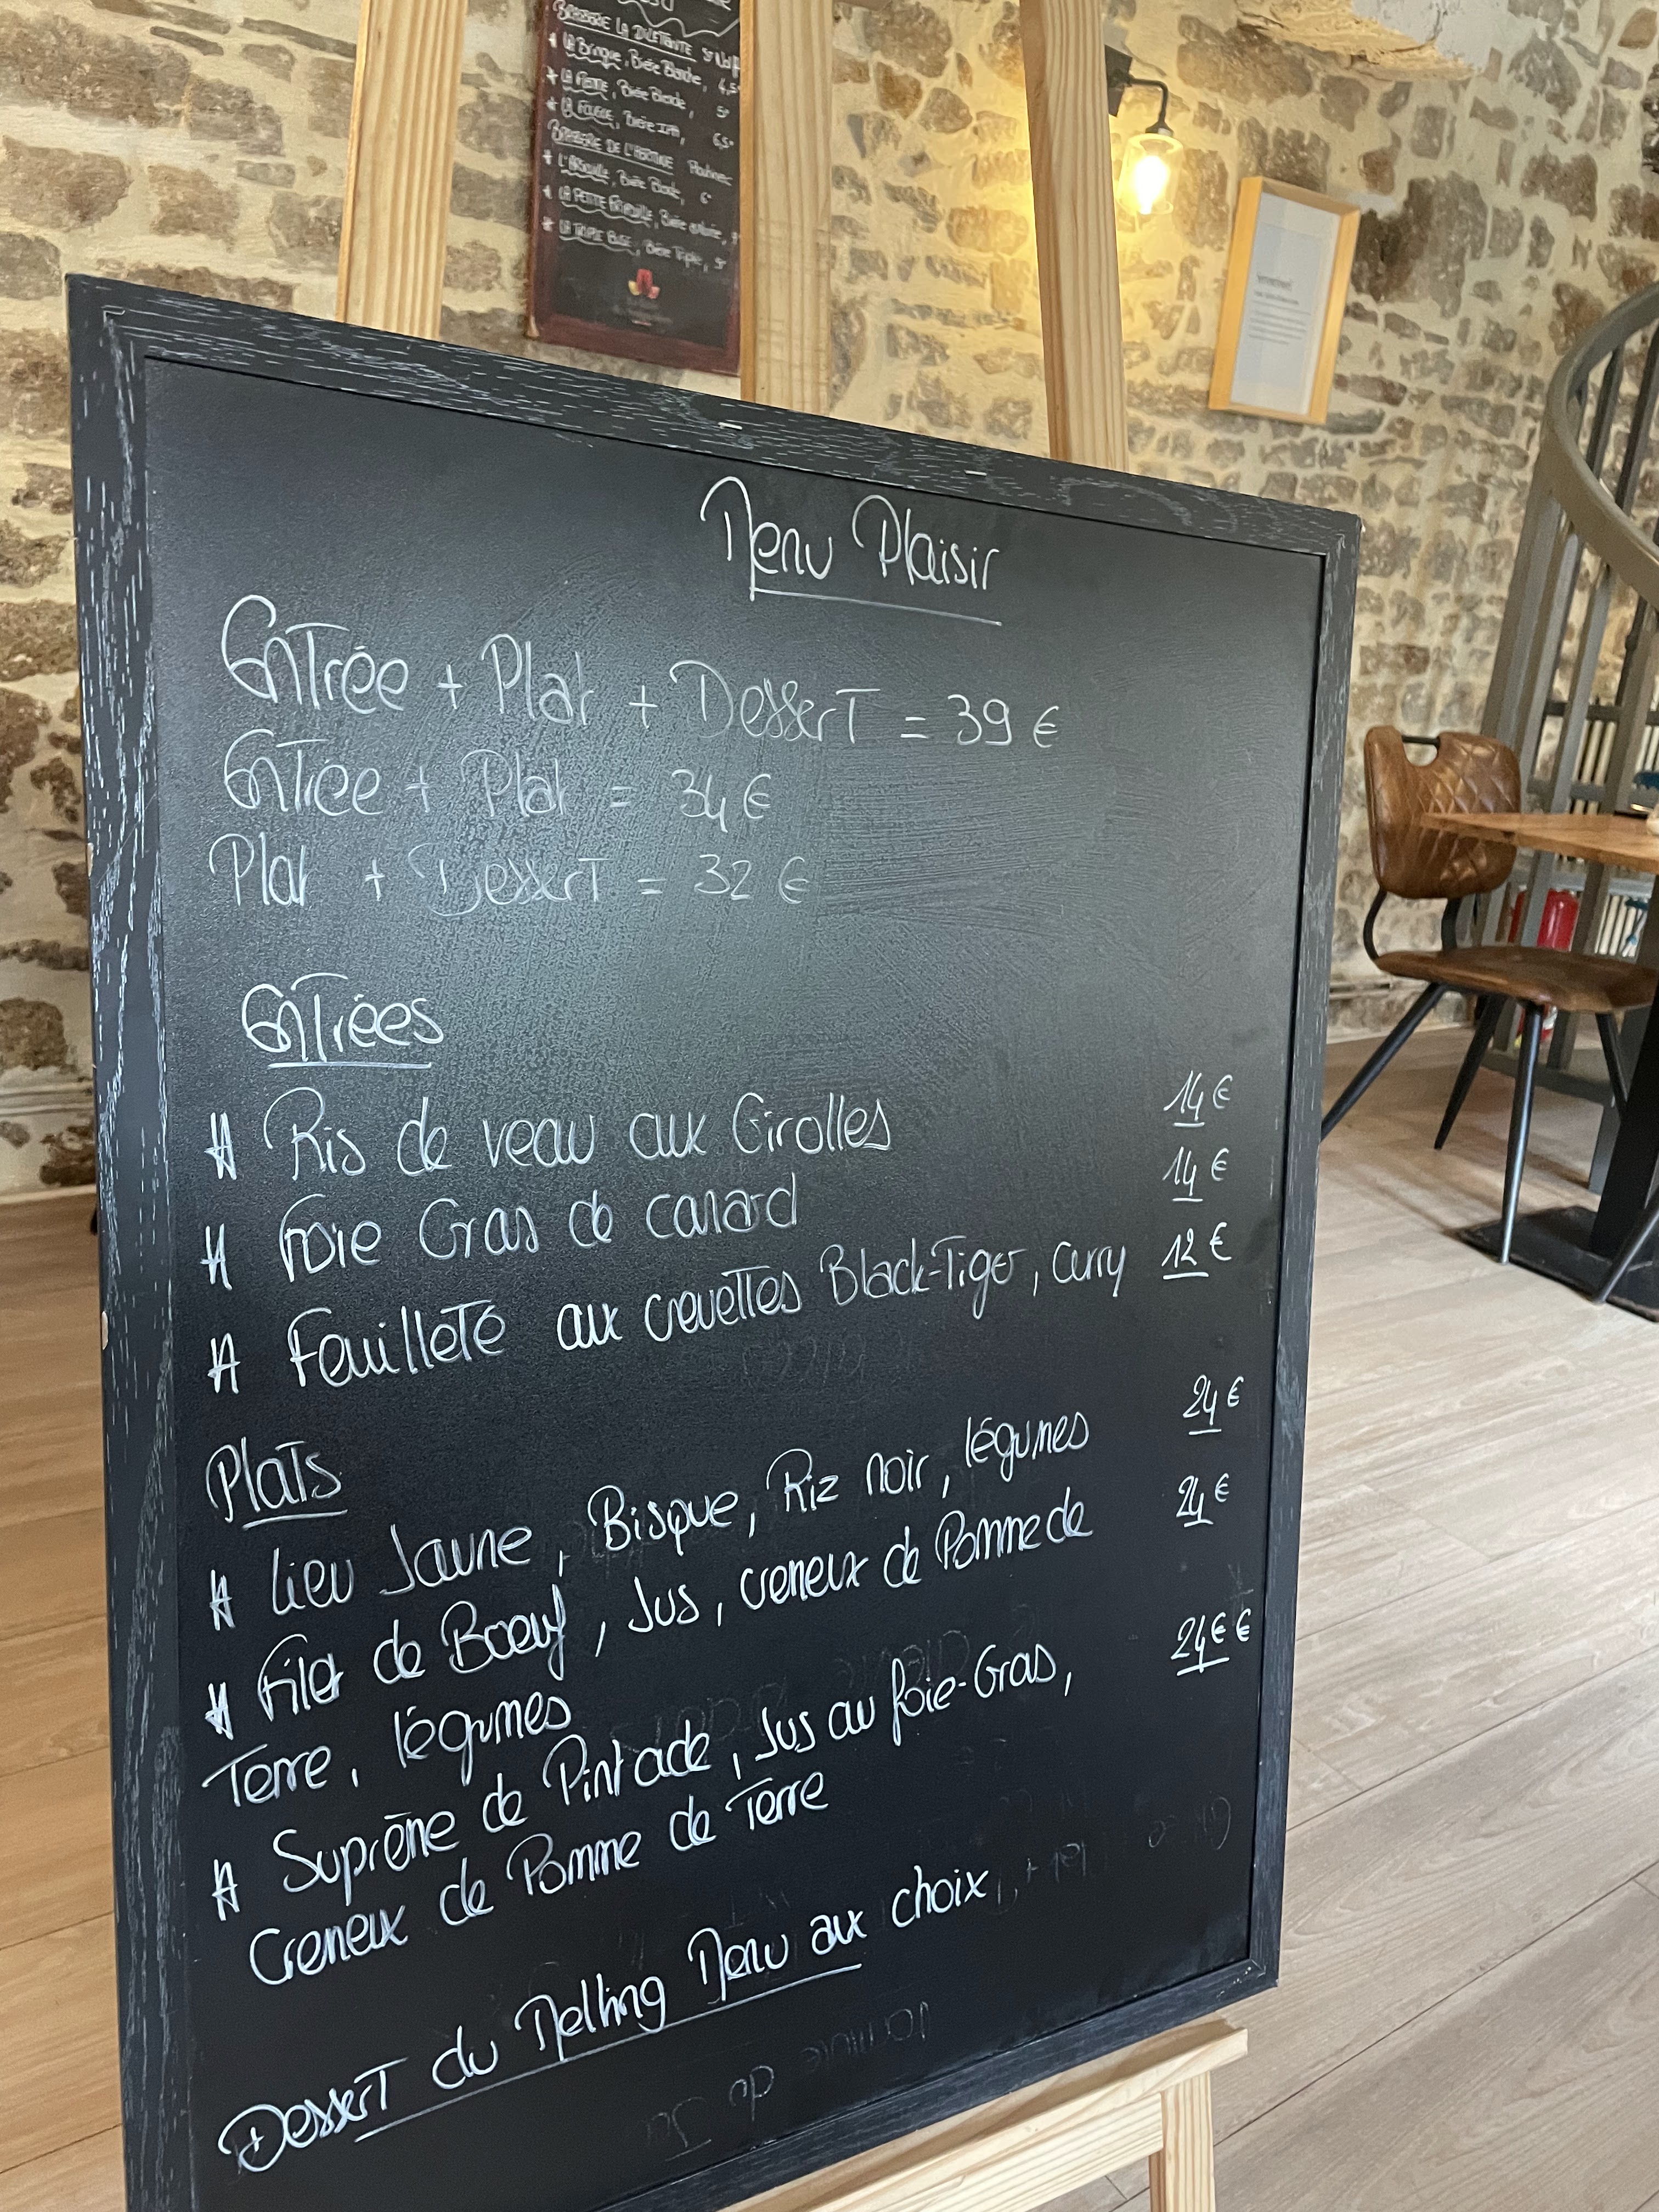 BRASSERIE LA DILETTANTE
LA Bringue, Bière Blanche, 4,5€
Bière Blonde, 5€
Bière IPA, 6,5€
BRASSERIE DE L'HERMINE
Bière 6€
LA PETITE Bière
LA TRIPLE Bière Triple, 5€
Menu Plaisir
Entrée + Plat + Dessert = 39 €
Entrée + Plat = 34 €
Plat + Dessert = 32 €
Entrées
Ris de veau aux Girolles 14 €
Foie Gras de canard 14 €
Feuilleté aux crevettes Black-Tiger, curry 12 €
Plats
Lieu Jaune, Bisque, Riz noir, légumes 24 €
Filet de Boeuf, Jus, cremeux de Pomme de 24 €
Terre, légumes
Suprême de Pintade, Jus au foie-Gras, 24 € €
Cremeux de Pomme de Terre
Dessert du Melting Menu aux choix